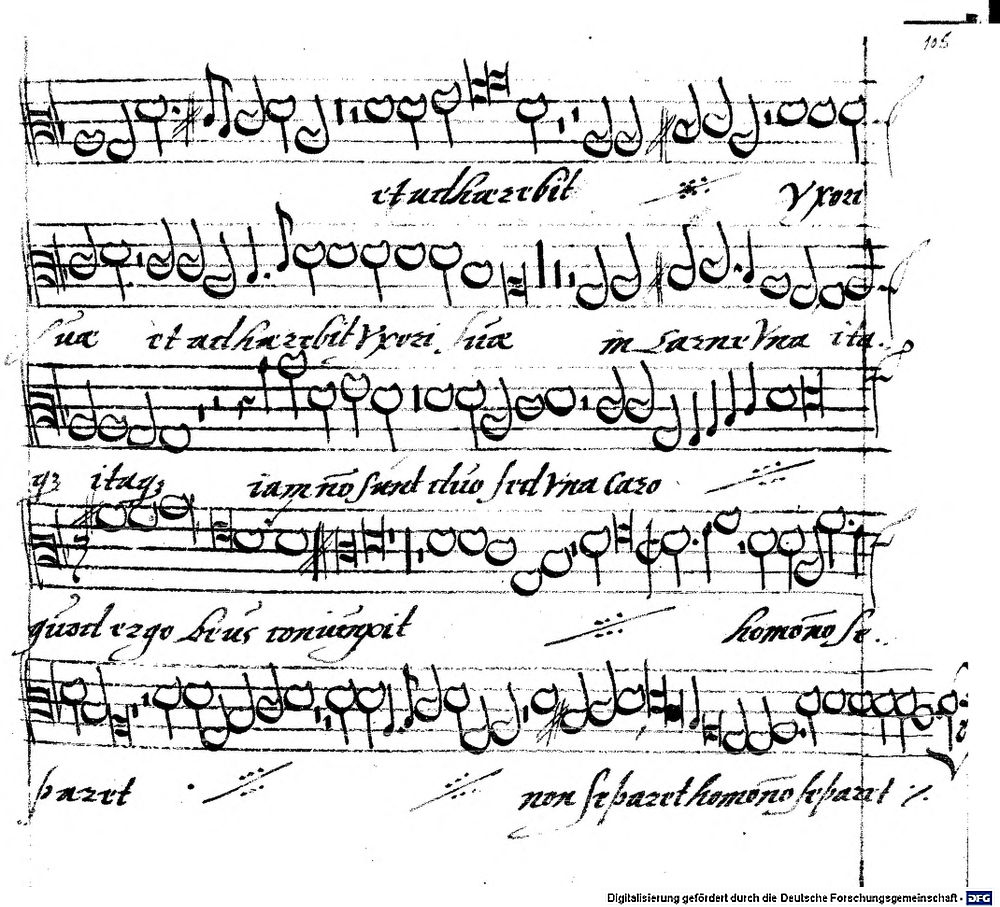 105
et adhærebit Yxori
suæ et adhærebit Yxori suæ in Carne Vna ita
qz itaqz iam nõ sunt duo sed Vna Caro
quod ergo Deus coniungxit homo nõ se
paret non separet homo nõ separet
Digitalisierung gefördert durch die Deutsche Forschungsgemeinschaft - DFG